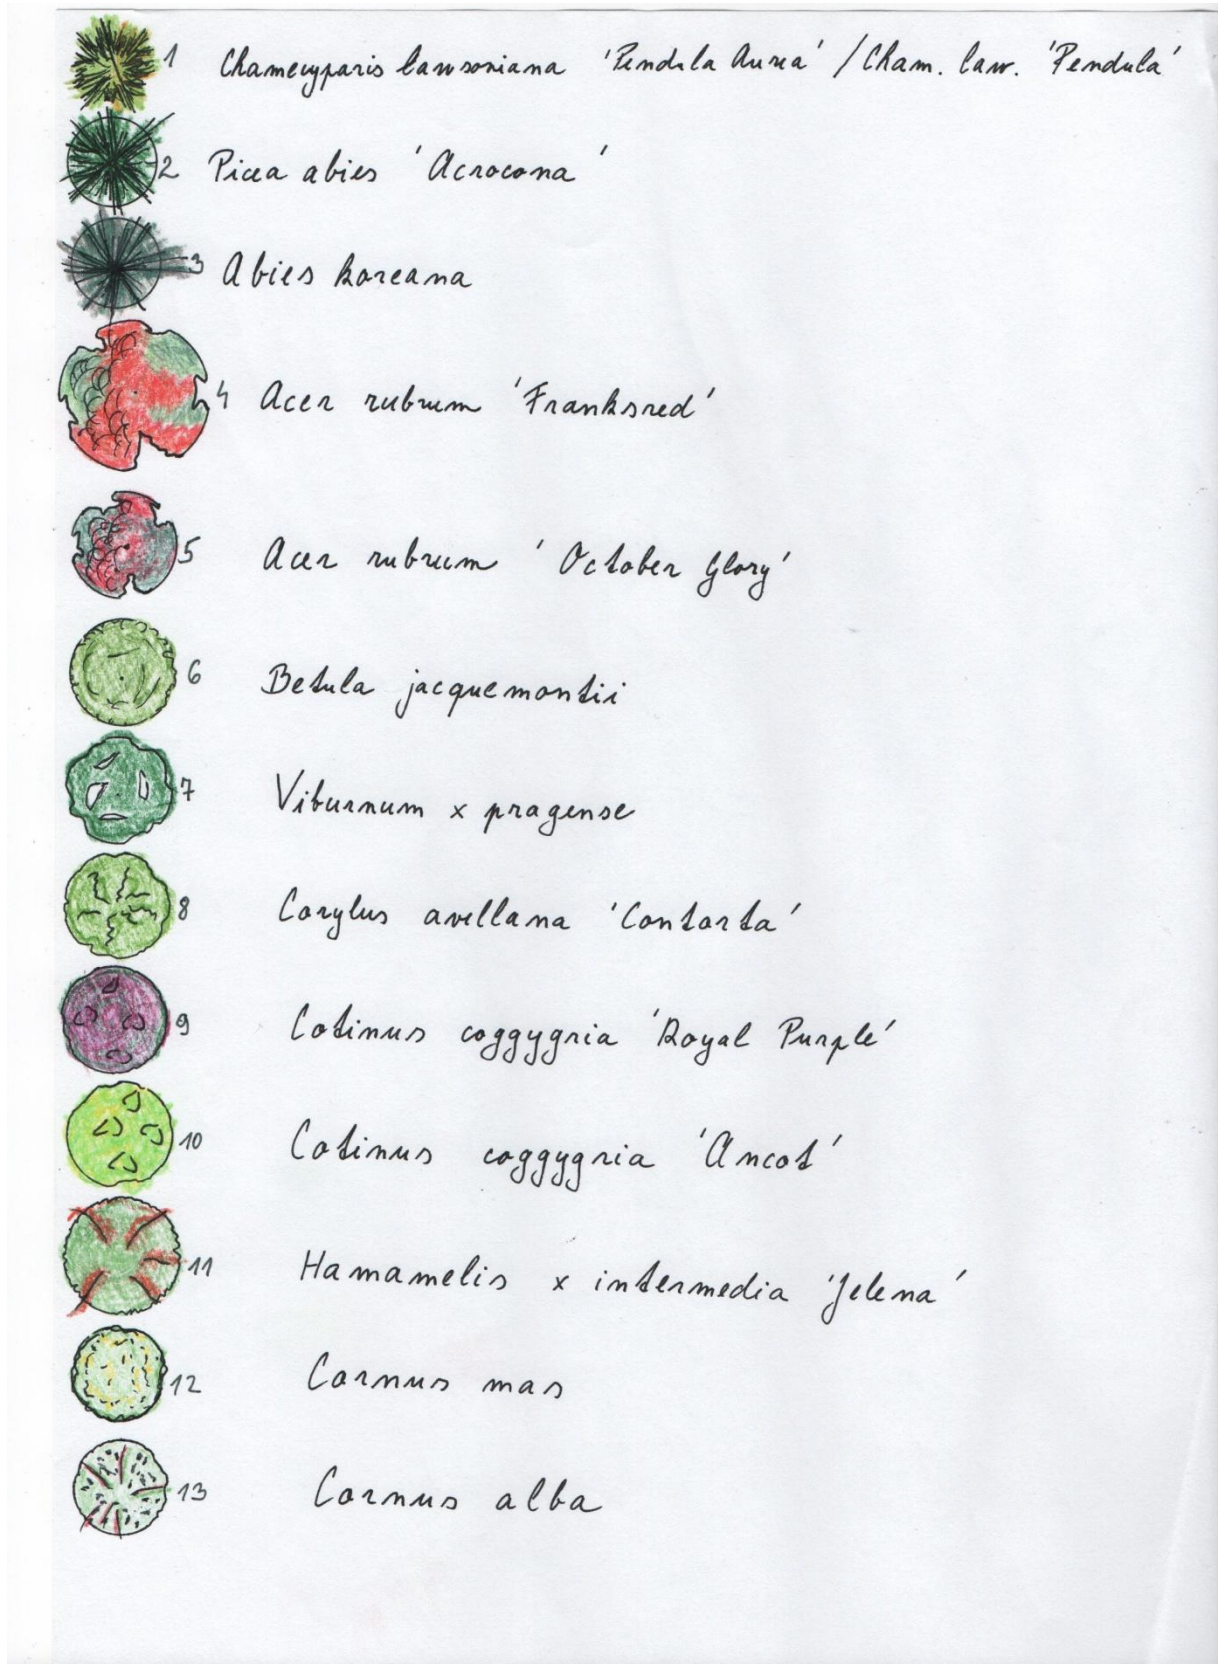 1 Chamecyparis lawsoniana 'Pendula Aurea' / Cham. law. 'Pendula'
2 Picea abies 'Acrocona'
3 Abies koreana
4 Acer rubrum 'Franksred'
5 Acer rubrum 'October Glory'
6 Betula jacquemontii
7 Viburnum x pragense
8 Corylus avellana 'Contorta'
9 Cotinus coggygria 'Royal Purple'
10 Cotinus coggygria 'Ancot'
11 Hamamelis x intermedia 'Jelena'
12 Cornus mas
13 Cornus alba